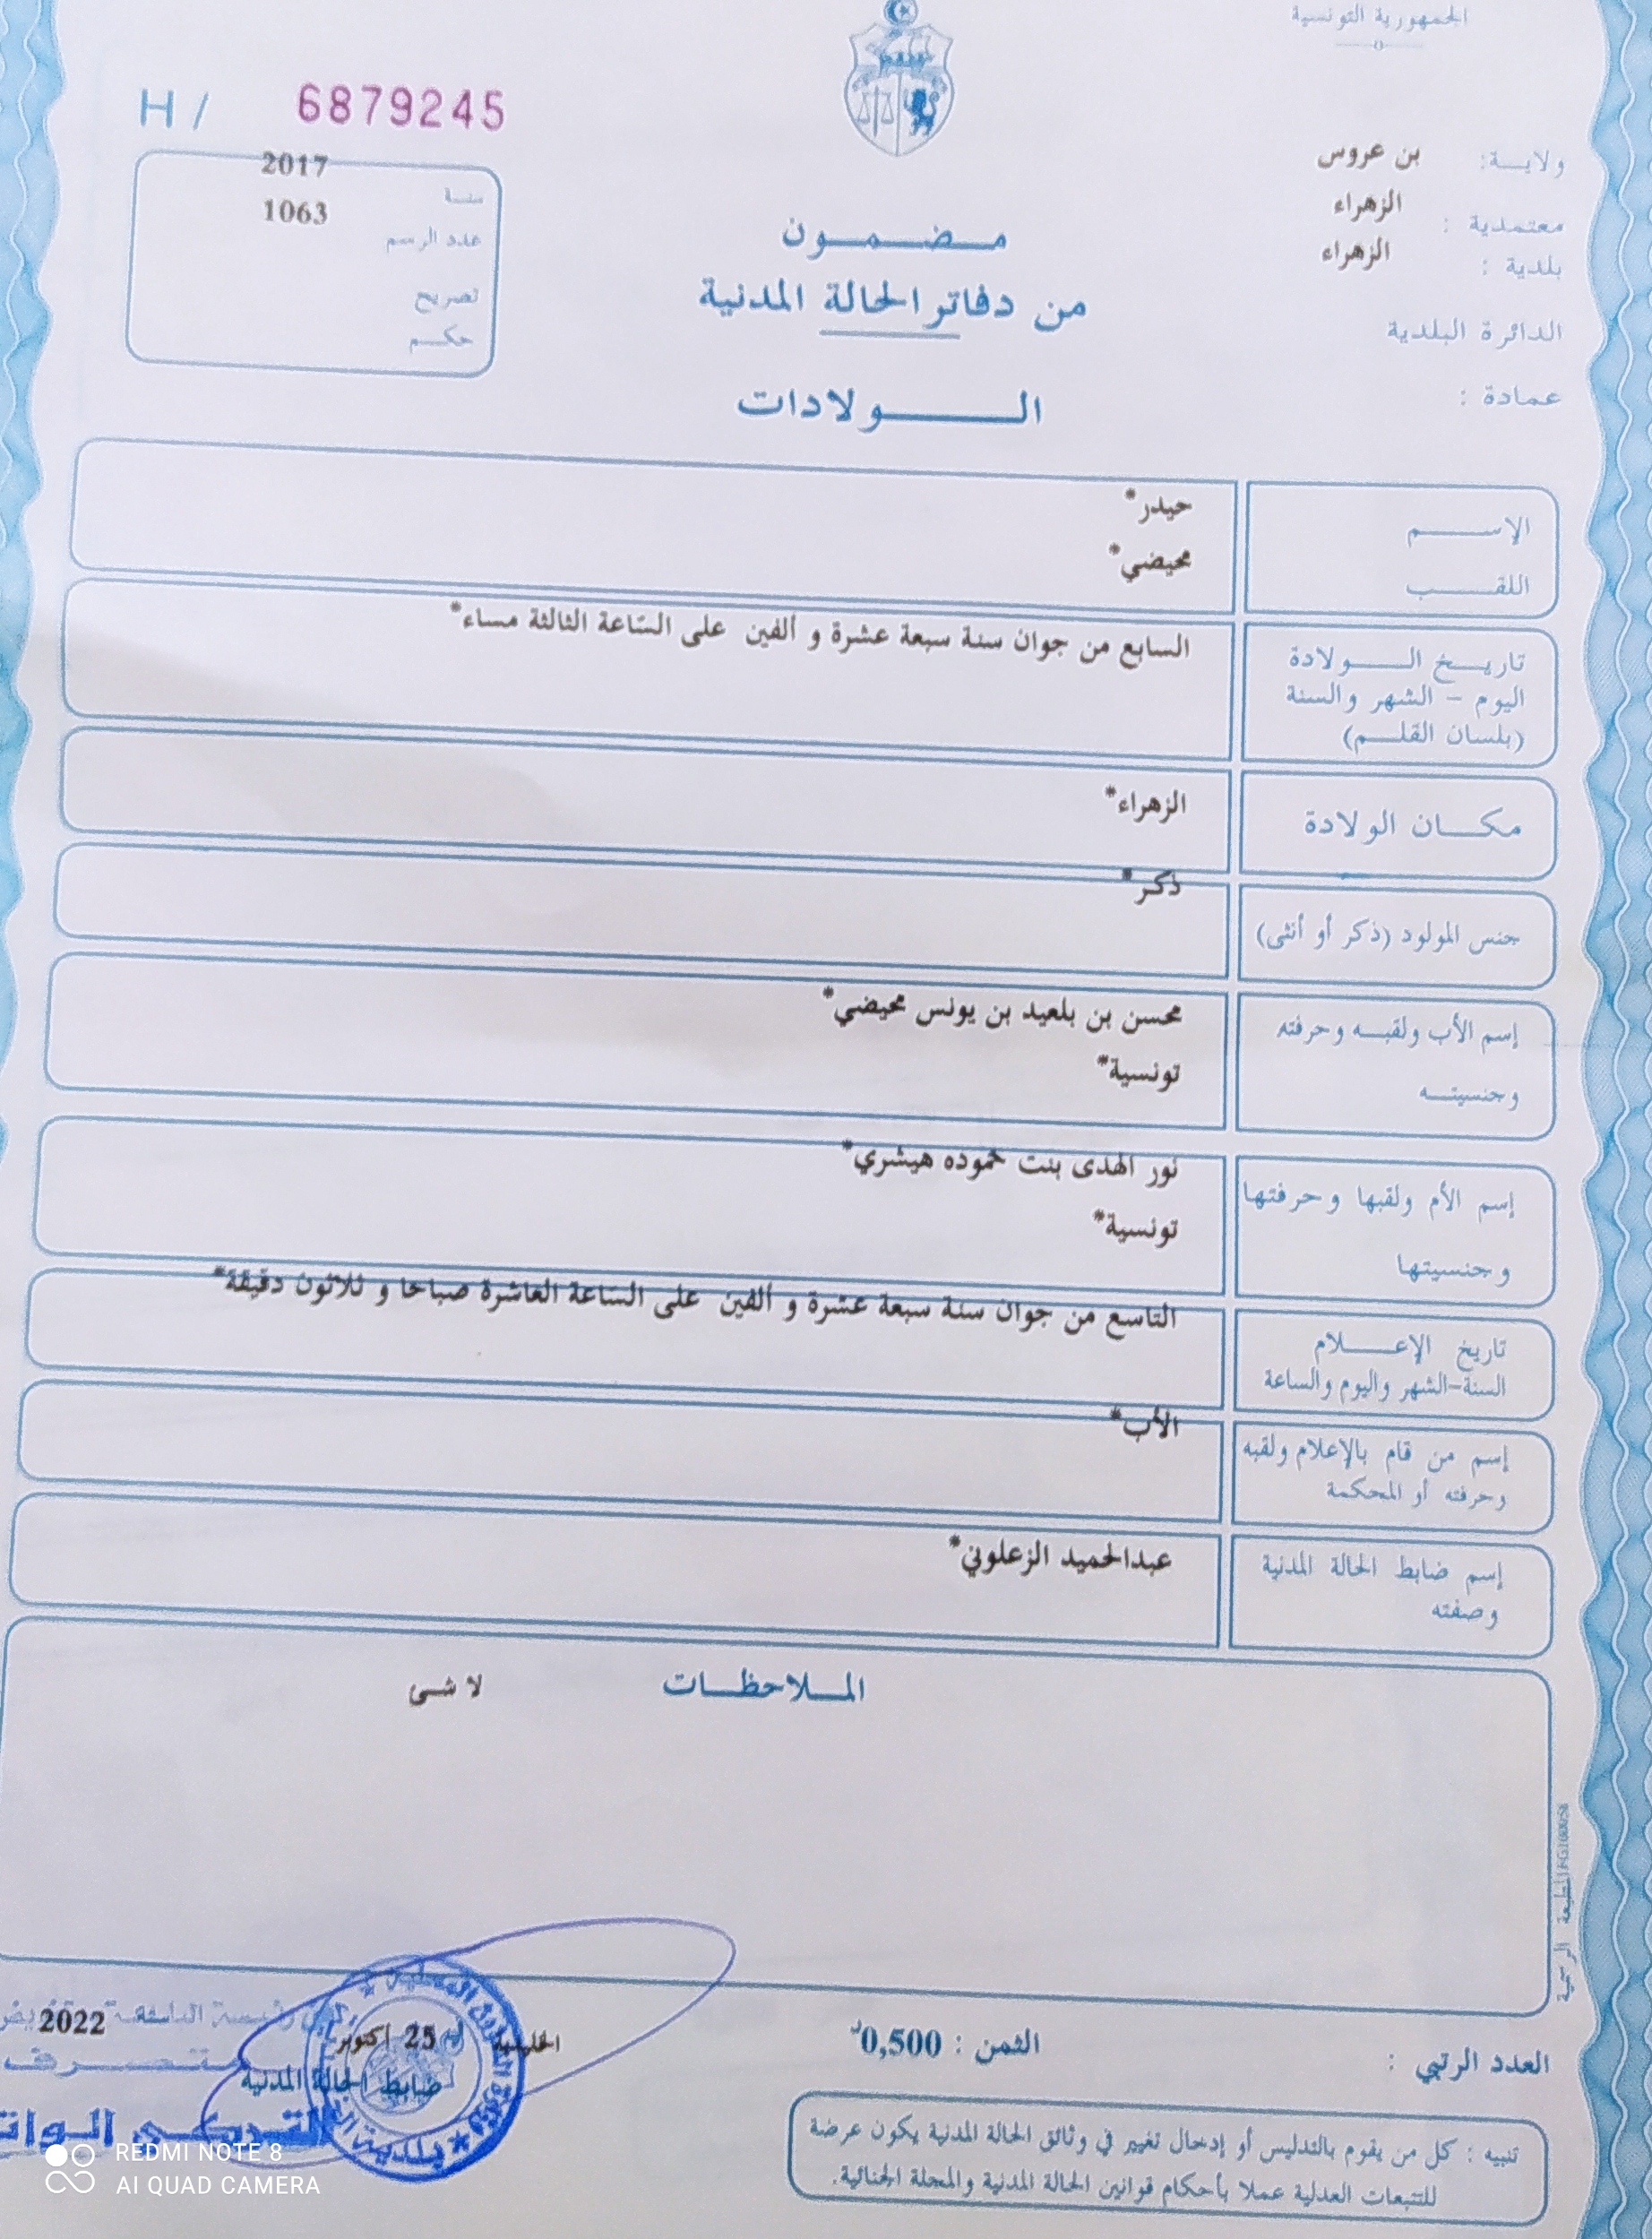 الجمهورية التونسية
H / 6879245
ولايــة: بن عروس
معتمدية : الزهراء
بلدية : الزهراء
الدائرة البلدية
عمادة :
سنـة 2017
عدد الرسم 1063
تصريح
حكـم
مـضـمـون
من دفاتر الحالة المدنية
الـولادات
الإســـم حيدر*
اللقـــب محيضي*
تاريـخ الـــولادة السابع من جوان سنة سبعة عشرة و ألفين على السّاعة الثالثة مساء*
اليوم – الشهر والسنة
(بلسان القلـم)
مكـان الولادة الزهراء*
جنس المولود (ذكر أو أنثى) ذكر*
إسم الأب ولقبـه وحرفته محسن بن بلعيد بن يونس محيضي*
وجنسيتـه تونسية*
إسم الأم ولقبها وحرفتها نور الهدى بنت حموده هيشري*
وجنسيتها تونسية*
تاريخ الإعـــلام التاسع من جوان سنة سبعة عشرة و ألفين على السّاعة العاشرة صباحا و ثلاثون دقيقة*
السنة-الشهر واليوم والساعة
إسم من قام بالإعلام ولقبه الأب*
وحرفته أو المحكمة
إسم ضابط الحالة المدنية عبدالحميد الزعلوني*
وصفته
المـلاحظـات لا شئ
المطبعة الرسمية
العدد الرتبي :
الثمن : 0,500د
25 أكتوبر 2022
ضابط الحالة المدنية
متصرف
تنبيه : كل من يقوم بالتدليس أو إدخال تغيير في وثائق الحالة المدنية يكون عرضة
للتتبعات العدلية عملا بأحكام قوانين الحالة المدنية والمجلة الجنائية.
REDMI NOTE 8
AI QUAD CAMERA